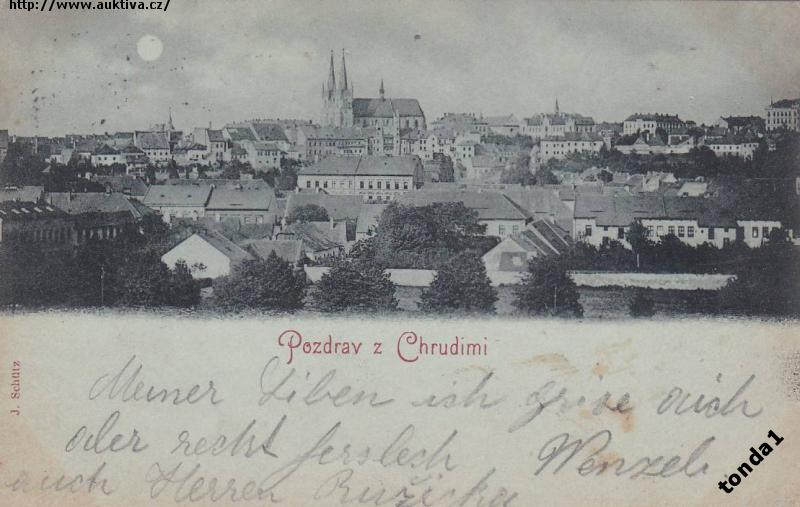 http://www.auktiva.cz/
Pozdrav z Chrudimi
J. Schütz
Meiner Liben ich grise auch
aber recht ferslech Wenzel
auch Herren Ružicka
tonda1